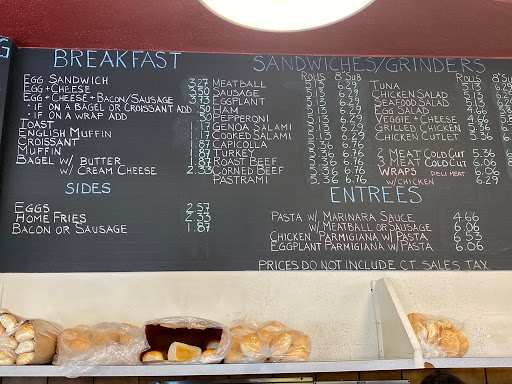 BREAKFAST
EGG SANDWICH 3.27
EGG + CHEESE 3.50
EGG + CHEESE + BACON/SAUSAGE 3.73
• IF ON A BAGEL OR CROISSANT ADD .50
• IF ON A WRAP ADD .50
TOAST 1.17
ENGLISH MUFFIN 1.17
CROISSANT 1.87
MUFFIN 1.87
BAGEL W/ BUTTER 1.87
W/ CREAM CHEESE 2.33
SIDES
EGGS 2.57
HOME FRIES 2.33
BACON OR SAUSAGE 1.87
SANDWICHES/GRINDERS
ROLLS 8"SUB
MEATBALL 5.13 6.29
SAUSAGE 5.13 6.29
EGGPLANT 5.13 6.29
HAM 5.13 6.29
PEPPERONI 5.13 6.29
GENOA SALAMI 5.13 6.29
COOKED SALAMI 5.13 6.29
CAPICOLLA 5.36 6.76
TURKEY 5.36 6.76
ROAST BEEF 5.36 6.76
CORNED BEEF 5.36 6.76
PASTRAMI 5.36 6.76
ROLLS 8"SU
TUNA 5.13
CHICKEN SALAD 5.13
SEAFOOD SALAD 5.13
EGG SALAD 4.66
VEGGIE + CHEESE 4.66
GRILLED CHICKEN 5.36
CHICKEN CUTLET 5.36
2 MEAT COLD CUT 5.36 6.06
3 MEAT COLD CUT 5.36 6.06
WRAPS DELI MEAT 6.06
W/CHICKEN 6.29
ENTREES
PASTA W/ MARINARA SAUCE 4.66
W/ MEATBALL OR SAUSAGE 6.06
CHICKEN PARMIGIANA W/ PASTA 6.53
EGGPLANT PARMIGIANA W/ PASTA 6.06
PRICES DO NOT INCLUDE CT SALES TAX